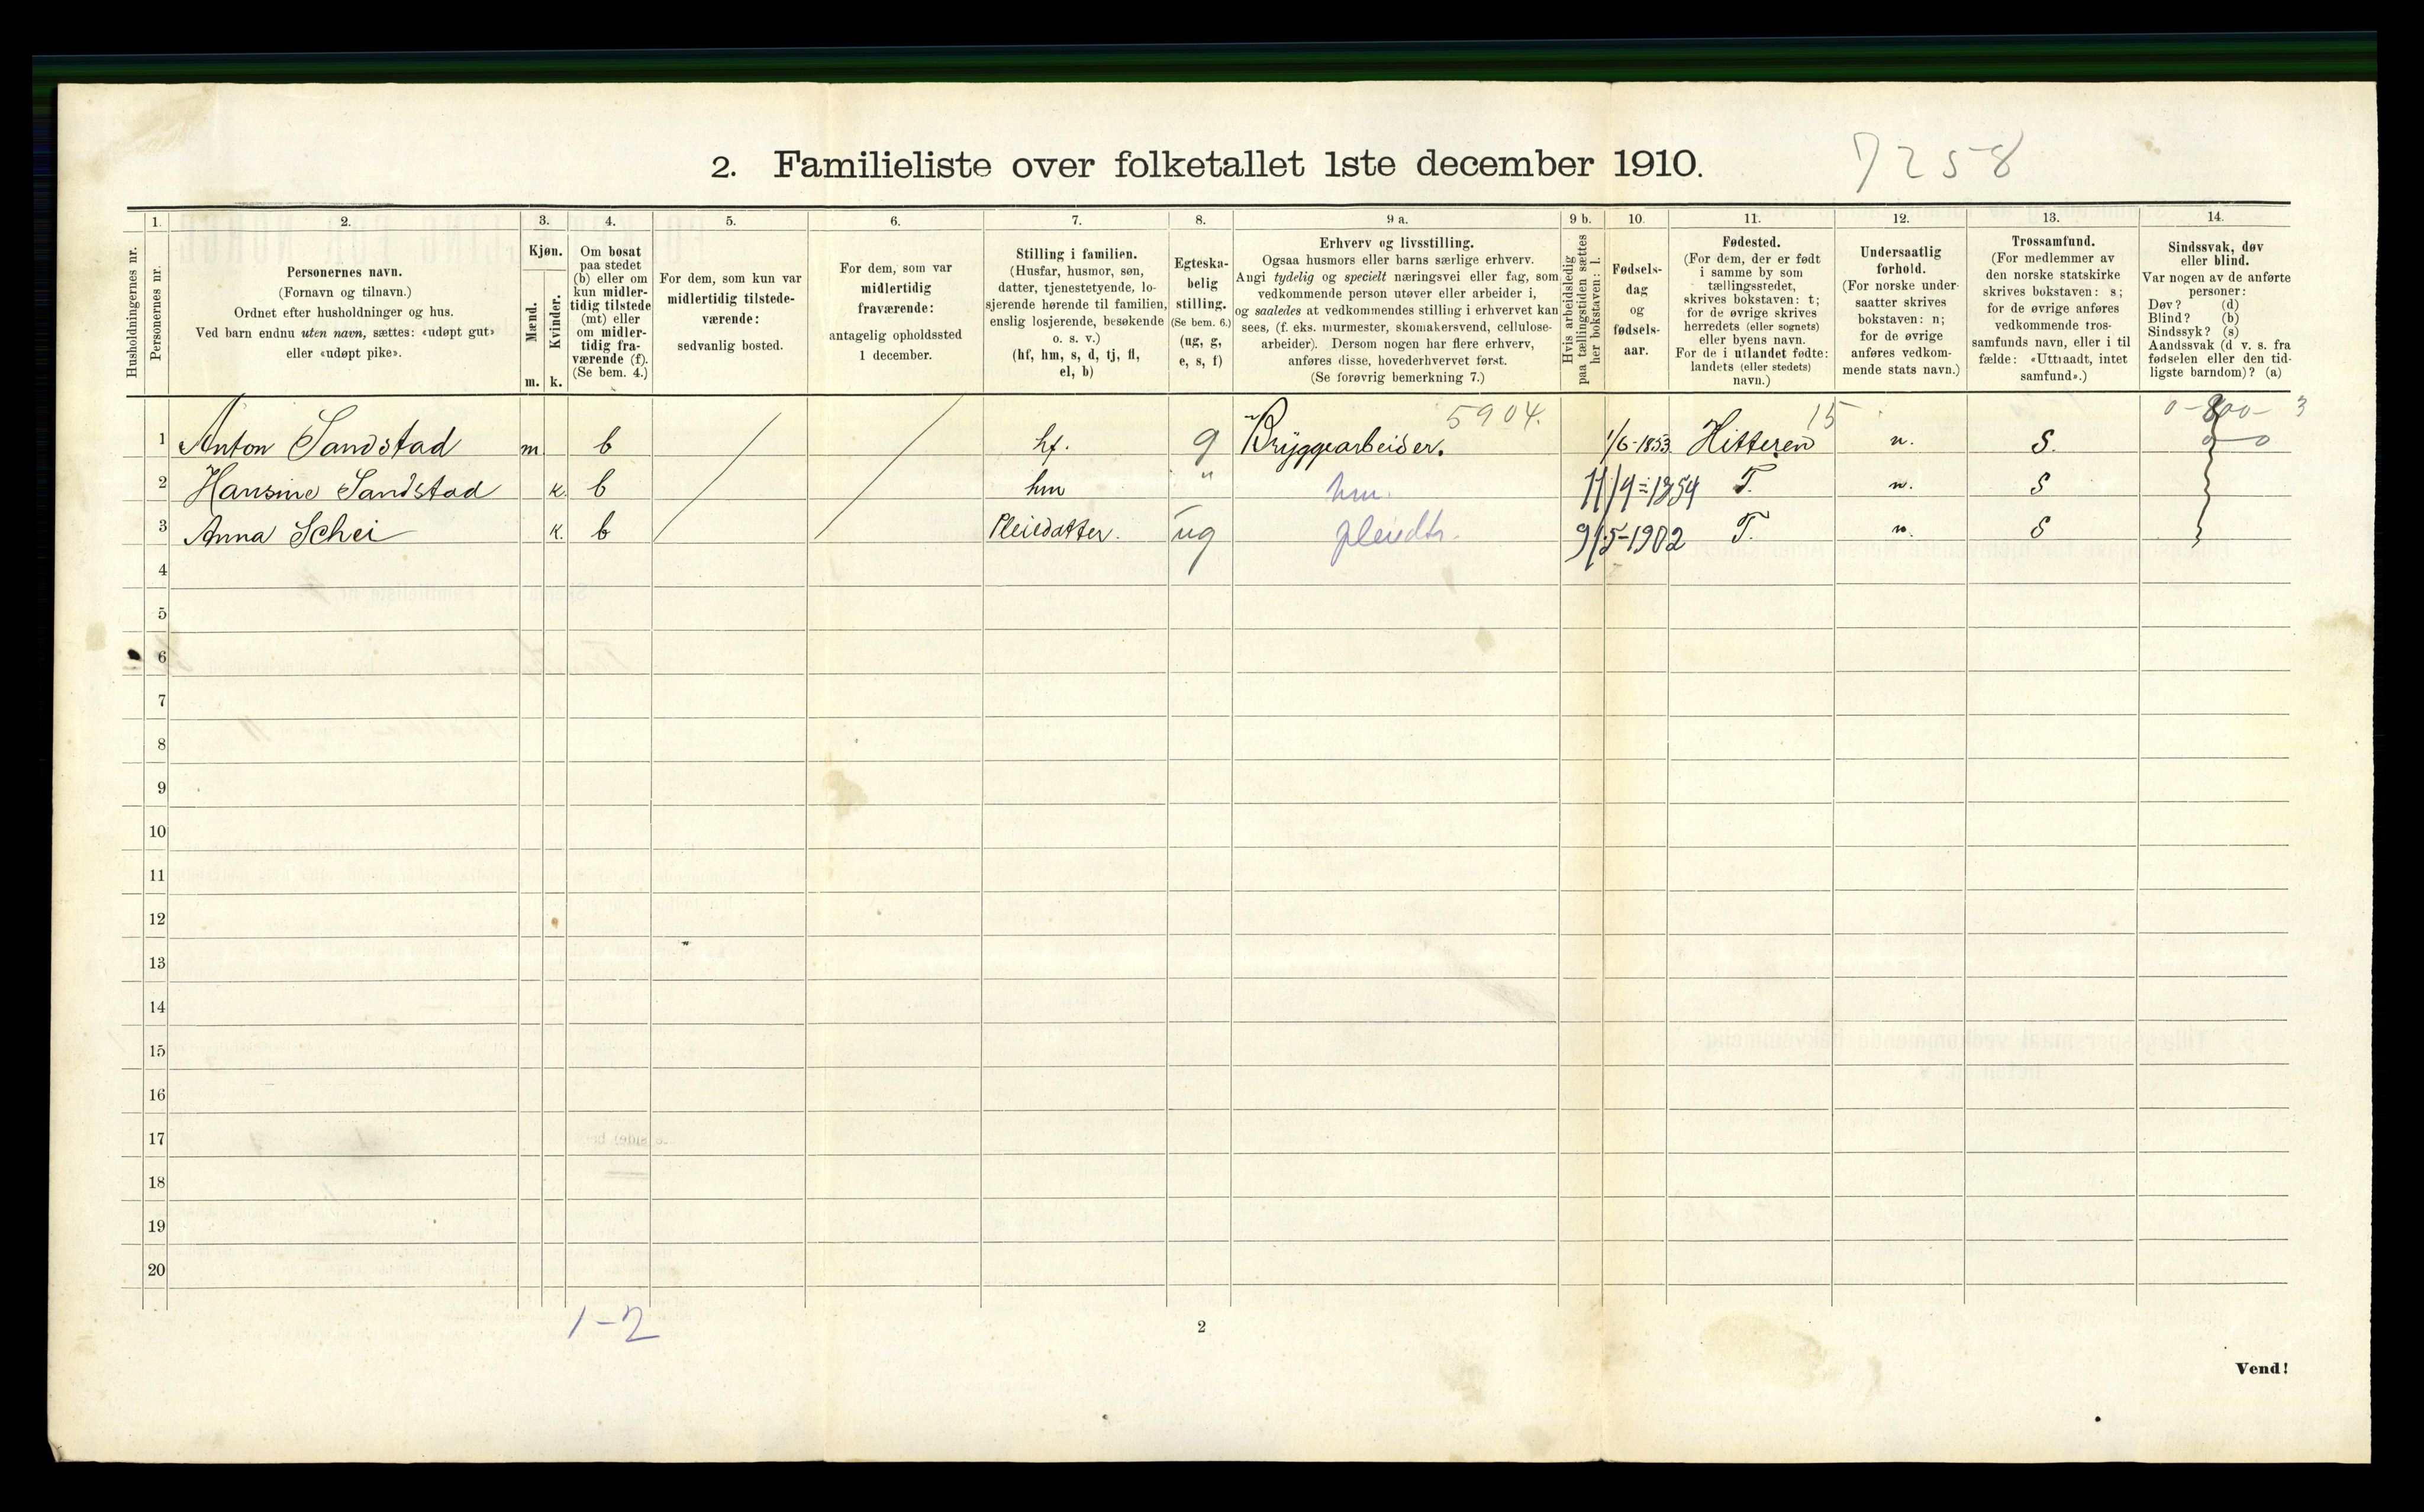 2. Familieliste over folketallet 1ste december 1910.
7258
Husholdningernes nr.
1.
Personernes nr.
2.
Personernes navn.
(Fornavn og tilnavn.)
Ordnet efter husholdninger og hus.
Ved barn endnu uten navn, sættes: «udøpt gut»
eller «udøpt pike».
3.
Kjøn.
Mænd.
Kvinder.
m. k.
4.
Om bosat
paa stedet
(b) eller om
kun midler-
tidig tilstede
(mt) eller
om midler-
tidig fra-
værende (f).
(Se bem. 4.)
5.
For dem, som kun var
midlertidig tilstede-
værende:
sedvanlig bosted.
6.
For dem, som var
midlertidig
fraværende:
antagelig opholdssted
1 december.
7.
Stilling i familien.
(Husfar, husmor, søn,
datter, tjenestetyende, lo-
sjerende hørende til familien,
enslig losjerende, besøkende
o. s. v.)
(hf, hm, s, d, tj, fl,
el, b)
8.
Egteska-
belig
stilling.
(Se bem. 6.)
(ug, g,
e, s, f)
9 a.
Erhverv og livsstilling.
Ogsaa husmors eller barns særlige erhverv.
Angi tydelig og specielt næringsvei eller fag, som
vedkommende person utøver eller arbeider i,
og saaledes at vedkommendes stilling i erhvervet kan
sees, (f. eks. murmester, skomakersvend, cellulose-
arbeider). Dersom nogen har flere erhverv,
anføres disse, hovederhvervet først.
(Se forøvrig bemerkning 7.)
9 b.
Hvis arbeidsledig
paa tællingstiden sættes
her bokstaven: l.
10.
Fødsels-
dag
og
fødsels-
aar.
11.
Fødested.
(For dem, der er født
i samme by som
tællingsstedet,
skrives bokstaven: t;
for de øvrige skrives
herredets (eller sognets)
eller byens navn.
For de i utlandet fødte:
landets (eller stedets)
navn.)
12.
Undersaatlig
forhold.
(For norske under-
saatter skrives
bokstaven: n;
for de øvrige
anføres vedkom-
mende stats navn.)
13.
Trossamfund.
(For medlemmer av
den norske statskirke
skrives bokstaven: s;
for de øvrige anføres
vedkommende tros-
samfunds navn, eller i til-
fælde: «Uttraadt, intet
samfund».)
14.
Sindssvak, døv
eller blind.
Var nogen av de anførte
personer:
Døv? (d)
Blind? (b)
Sindssyk? (s)
Aandssvak (d v. s. fra
fødselen eller den tid-
ligste barndom)? (a)
5904. 15
1 Anton Sandstad m b hf. g Bryggearbeider. 1/6-1853 Hitteren n. S.
2 Hansine Sandstad k. b hm " hm. 11/9=1854 T. n. S
3 Anna Schei k. b Pleiedatter. ug pleiedtr. 9/5-1902 T. n. S
4
5
6
7
8
9
10
11
12
13
14
15
16
17
18
19
20
1-2
2
Vend!